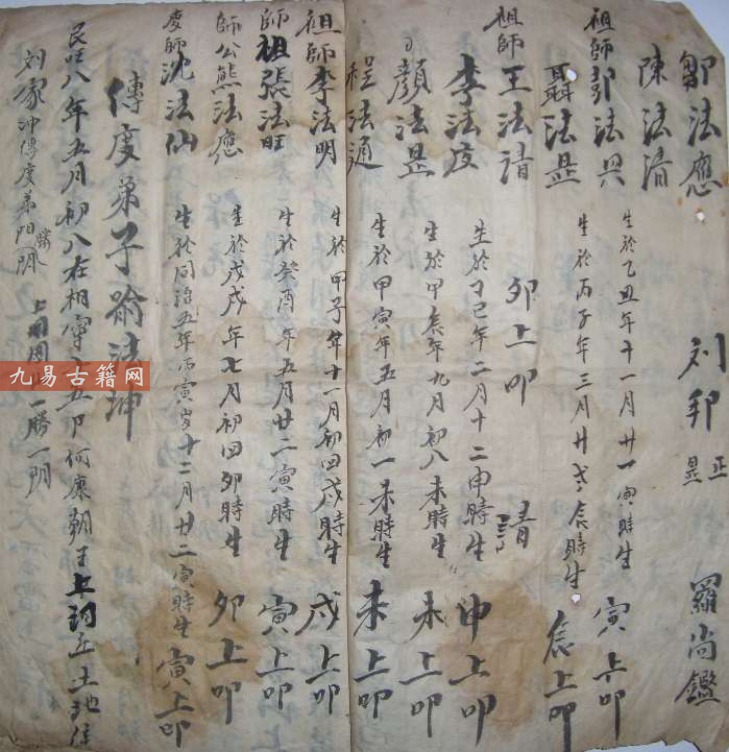 鄒法應 刘邦 正 显 羅尚鑑
陳法清
祖師 郭法興 生於乙丑年十一月廿一寅時生 寅上叩
聶法显 生於丙子年三月廿 辰時生 辰上叩
祖師 王法清 卯上叩 請
李法度 生於丁巳年二月十二申時生 申上叩
顏法显 生於甲辰年九月初八未時生 未上叩
程法通 生於甲寅年五月初一未時生 未上叩
祖師李法明 生於甲子年十一月初四戌時生 戌上叩
師祖張法旺 生於癸酉年五月廿二寅時生 寅上叩
師公熊法應 生於戊戌年七月初四卯時生 卯上叩
度師沈法仙 生於同治五年丙寅岁十二月廿二寅時生 寅上叩
傳度弟子 法坤
民国八年五月初八在湘寧 五 何康朝王上 土地住
刘家冲傳度弟 一勝一明
九易古籍网